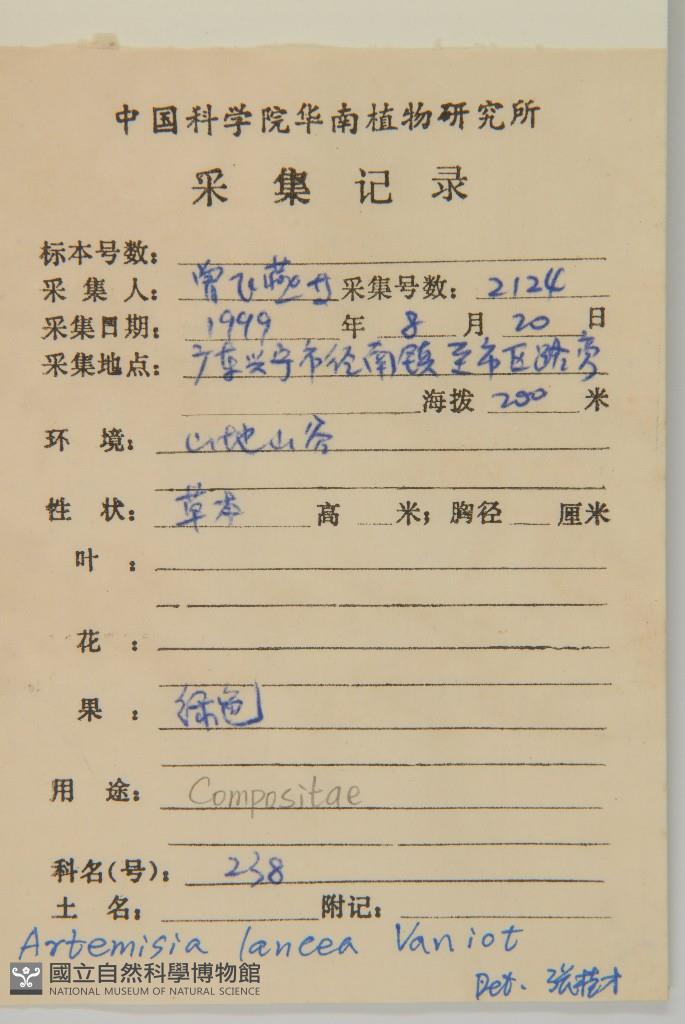 中国科学院华南植物研究所
采集记录
标本号数：
采集人：曾飞燕 采集号数：2124
采集日期：1999年8月20日
采集地点：广东兴宁市径南镇至市区路旁
海拨 200 米
环境：山地山谷
性状：草本 高 米；胸径 厘米
叶：
花：
果：绿色
用途：Compositae
科名(号)：238
土名： 附记：
Artemisia lancea Vaniot
Det. 张桂才
國立自然科學博物館
NATIONAL MUSEUM OF NATURAL SCIENCE